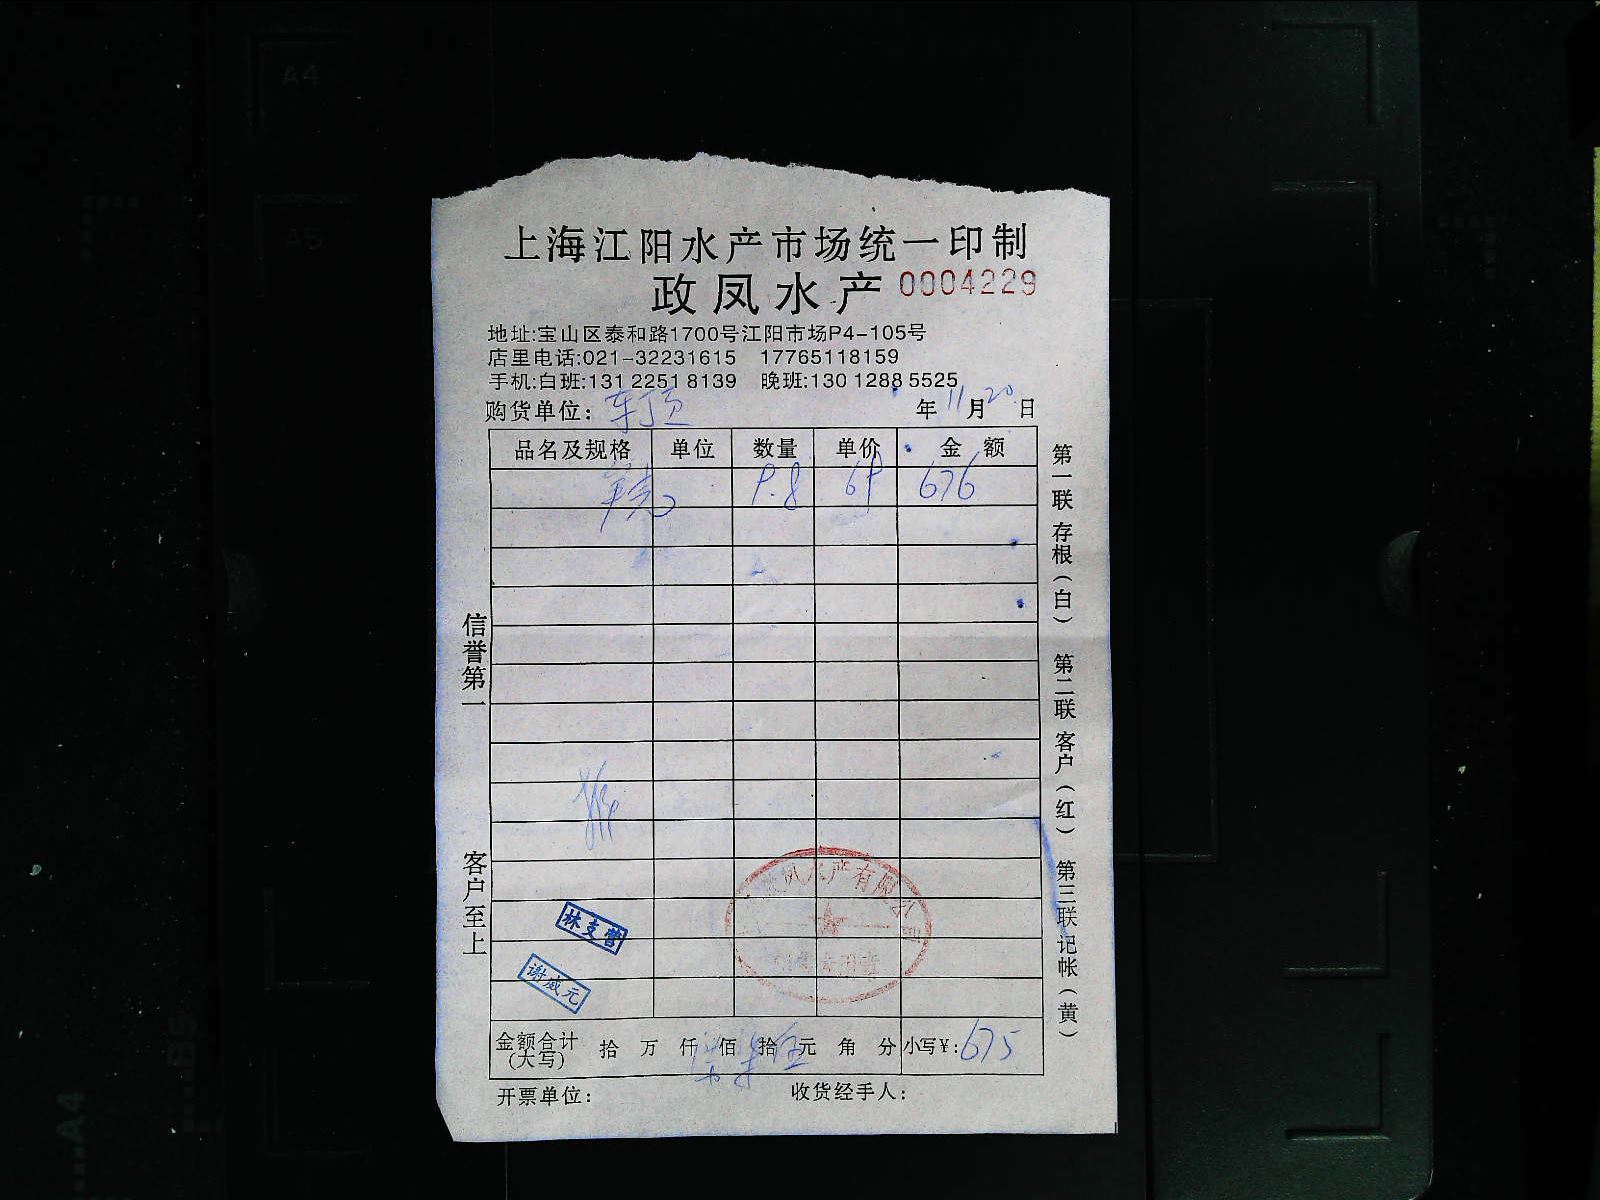 上海江阳水产市场统一印制
政凤水产 0004229
地址:宝山区泰和路1700号江阳市场P4-105号
店里电话:021-32231615 17765118159
手机:白班:131 2251 8139 晚班:130 1288 5525
购货单位: 车顶 年 11 月 20 日
品名及规格 单位 数量 单价 金 额
9.8 69 676
信誉第一
客户至上
第一联 存根(白) 第二联 客户(红) 第三联 记帐(黄)
凤水产有限公
林支营
谢威元
金额合计(大写) 拾 万 仟 佰 拾 元 角 分 小写¥: 675
开票单位: 收货经手人: